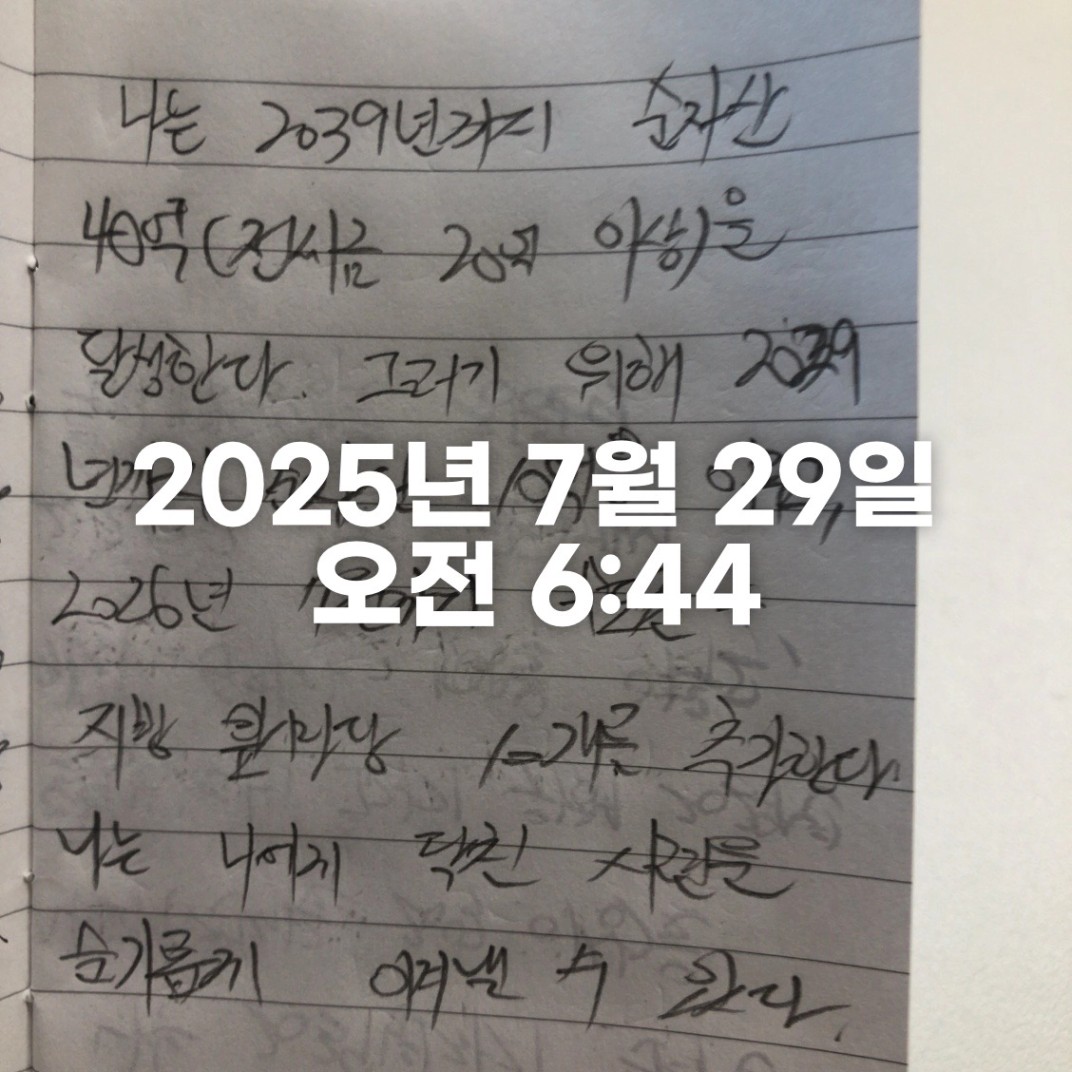 나는 2039년까지 순자산
40억(전세금 20억 이상)을
달성한다. 그러기 위해 2039
2025년 7월 29일
오전 6:44
2026년
지방 앞마당 1개를 추가한다.
나는 나에게 닥친 시련을
슬기롭게 이겨낼 수 있다.